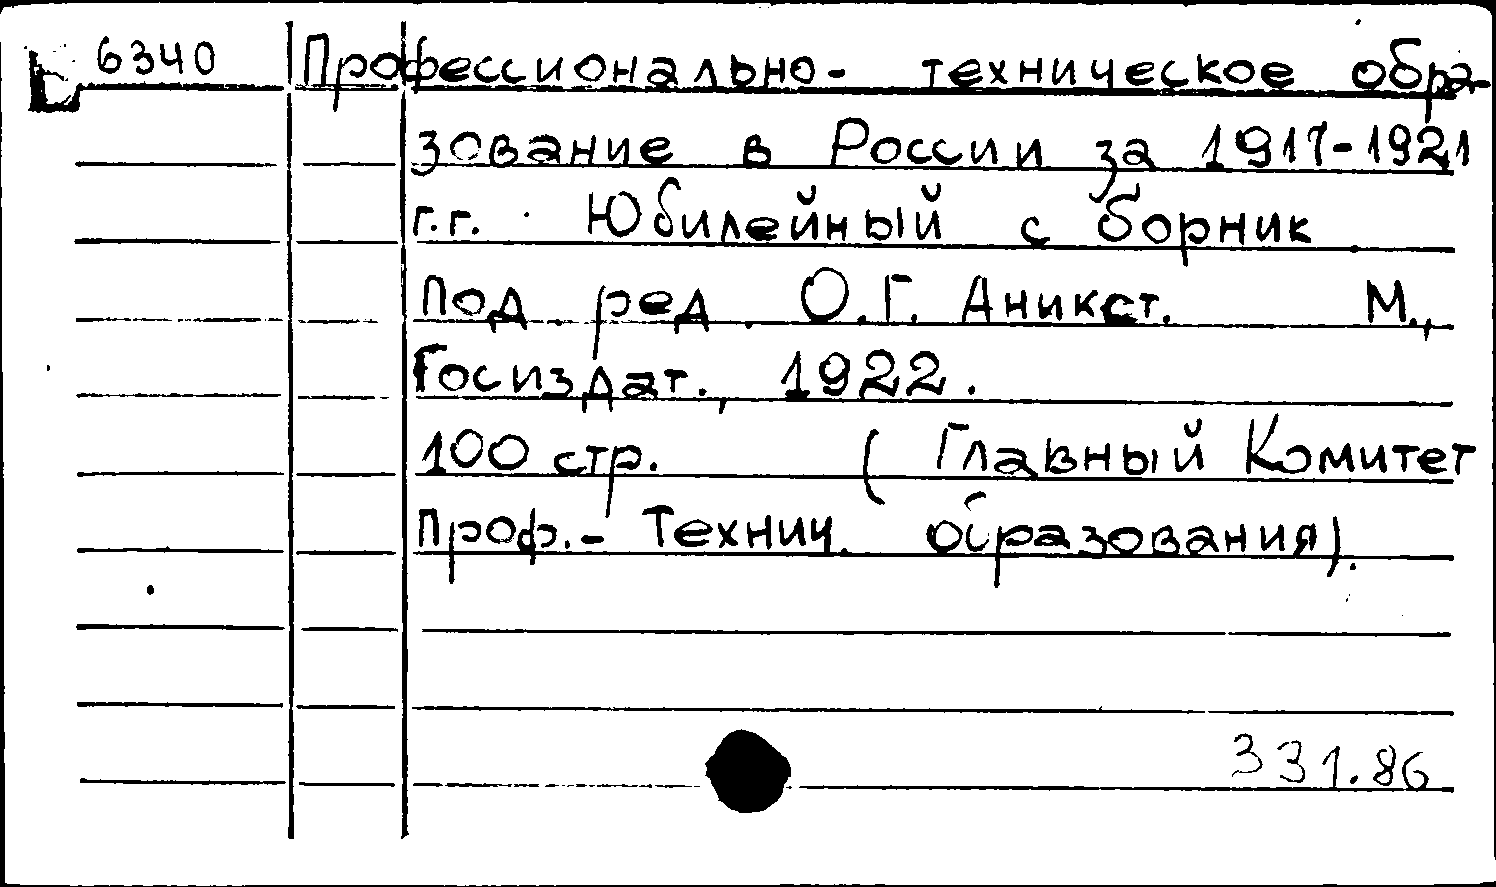 6340 Профессионально- техническое обра-
зование в России за 1917-1921
г.г. Юбилейный сборник
под ред. О.Г. Аникст. М.,
Госиздат., 1922.
100 стр. (Главный Комитет
Проф.- Технич. образования).
331.86